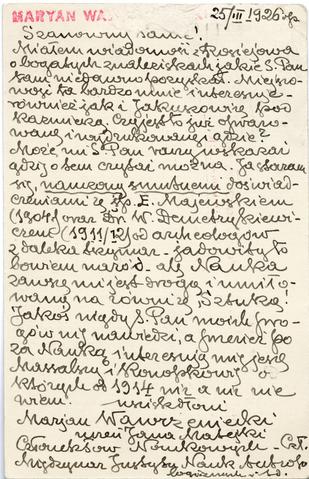 MARYAN WA
25/III 1926 r.
Szanowny Panie!
Miałem wiadomości z
o bogatych znaleziskach jakie S. Pan
tam niedawno pozyskał. Miejsco-
wość ta bardzo mnie interesuje
również jak i Jakuszowice pod
Kazimierzą. Czy jest to już opraco-
wane i wydrukowane i gdzie?
Może mi S. Pan raczy wskazać
gdzie o tem czytać można. Ja staram
się, nauczony smutnem doświad-
czeniami z ś.p. E. Majewskiem
(1904) oraz Dr. W. Demetrykiewi-
czem (1911/12) od archeologów
z daleka trzymać - jadowity to
bowiem naród - ale Nauka
zawsze mi jest droga i umiło-
waną na równi ze Sztuką!
Jakoś nigdy S. Pan moich pro-
gów nie nawiedzi, a przecież po
za Nauką interesują mię jeszcze
Massalscy i o
których od 1914 nic a nic nie
wiem.
Marjan Wawrzeniecki
uczeń Jana Matejki
Członek Naukowych - Czł.
Międzynar Instytutu Nauk Antropo
logicznych i t.d.